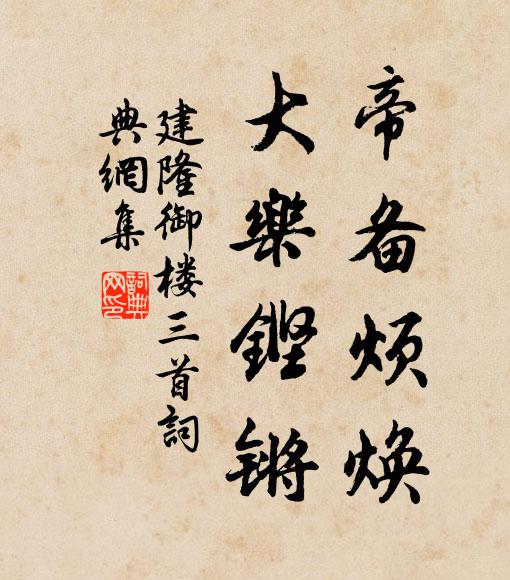 帝备烦焕
大樂鏗锵
建隆御楼三首詞
典網集
詞典
网印